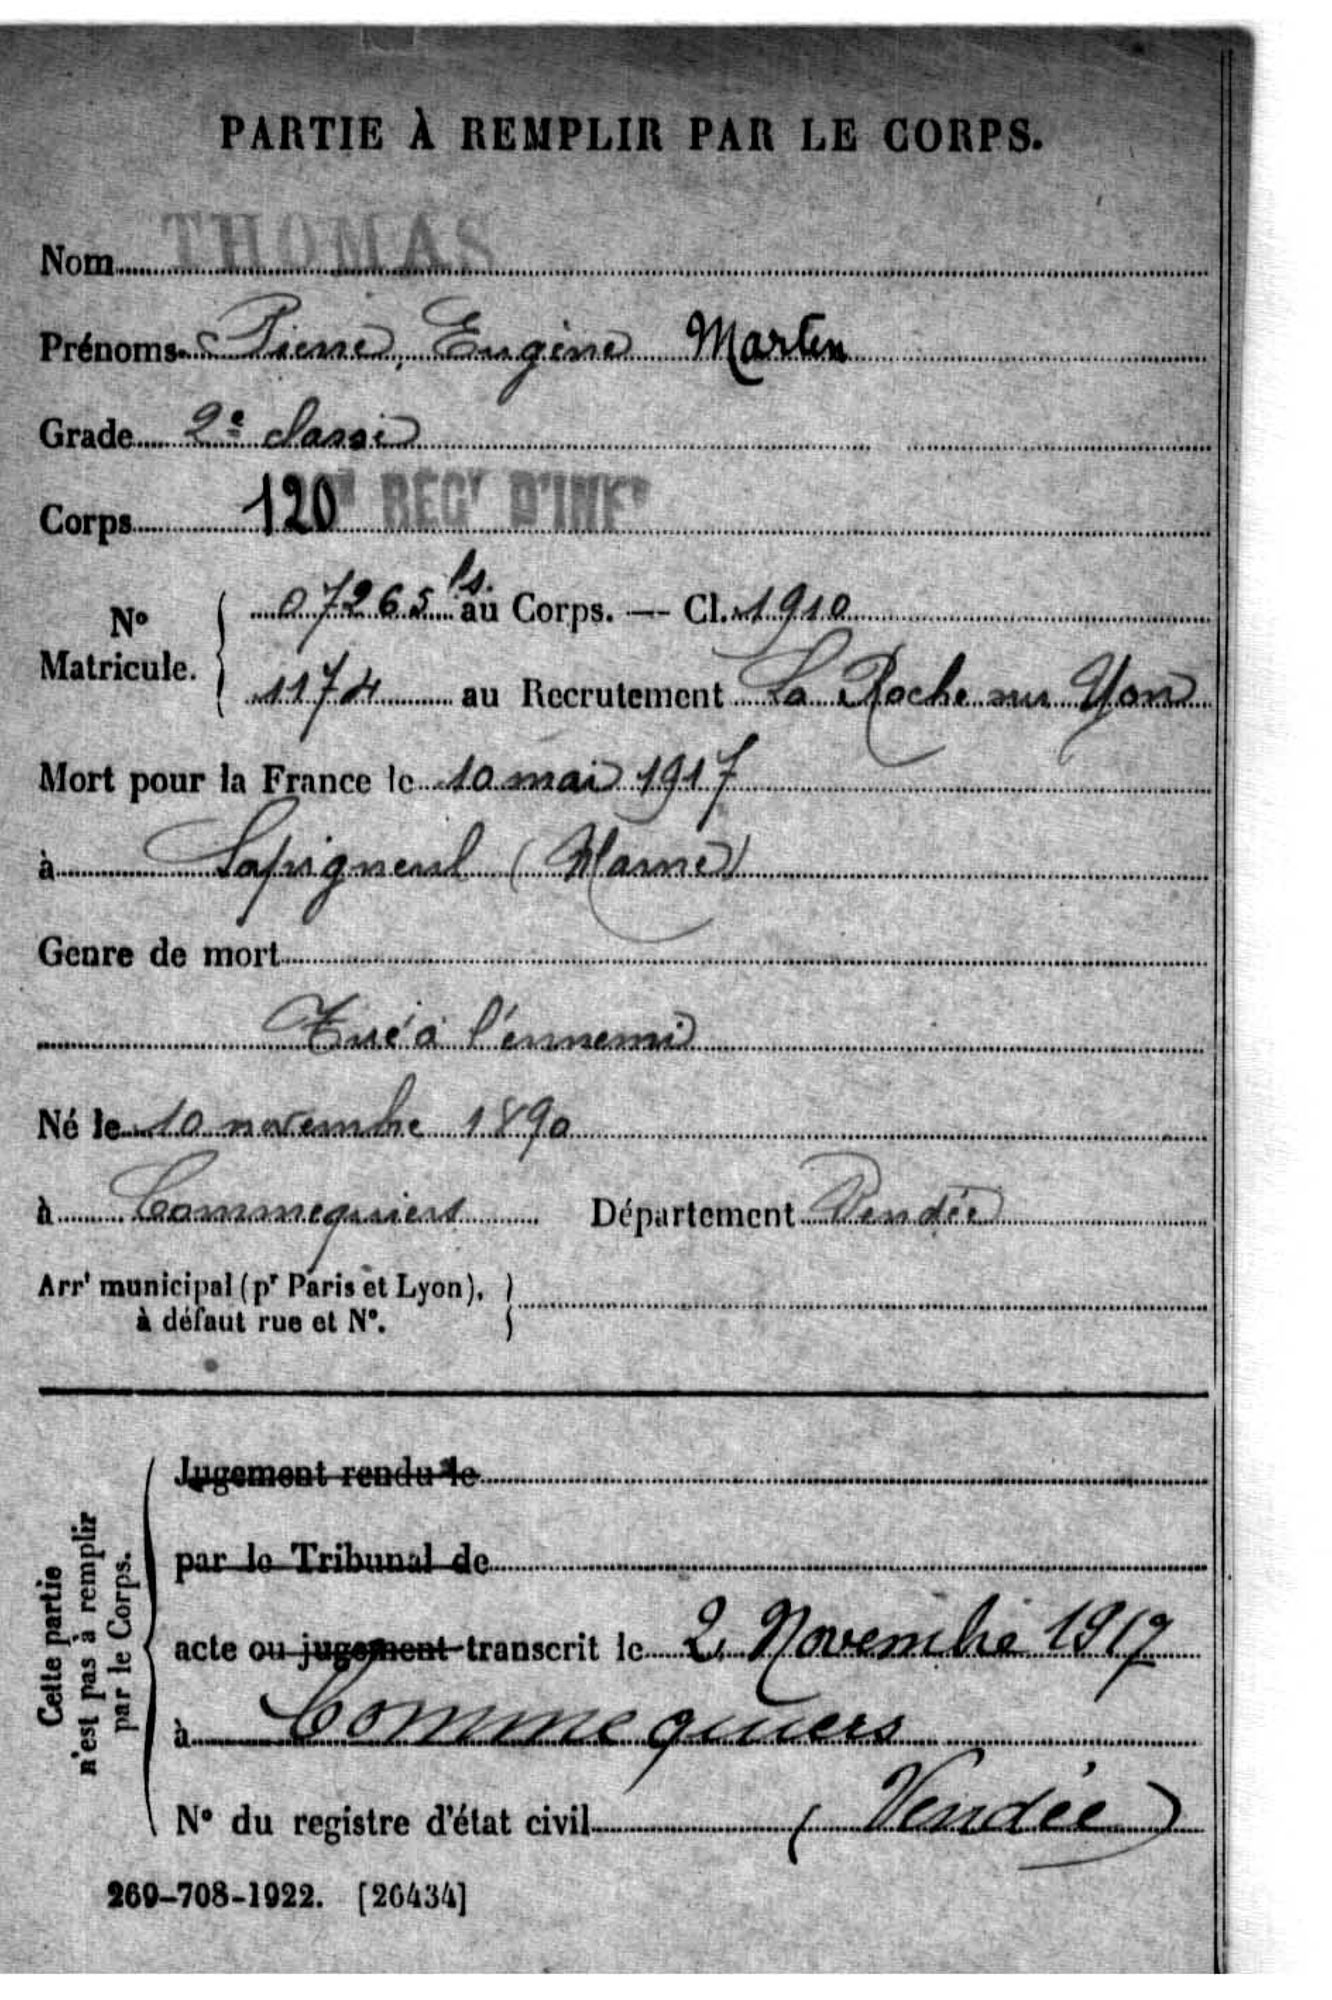 PARTIE À REMPLIR PAR LE CORPS.
Nom THOMAS
Prénoms Pierre, Eugène Martin
Grade 2e classe
Corps 120e REGt D'INFie
No Matricule. 07265 bis au Corps. — Cl. 1910
1174 au Recrutement La Roche sur Yon
Mort pour la France le 10 mai 1917
à Sapigneul (Marne)
Genre de mort
Tué à l'ennemi
Né le 10 novembre 1890
à Commequiers Département Vendée
Arrt municipal (pr Paris et Lyon),
à défaut rue et No.
Cette partie
n'est pas à remplir
par le Corps.
Jugement rendu le
par le Tribunal de
acte ou jugement transcrit le 2 Novembre 1917
à Commequiers
No du registre d'état civil (Vendée)
269-708-1922. [26434]